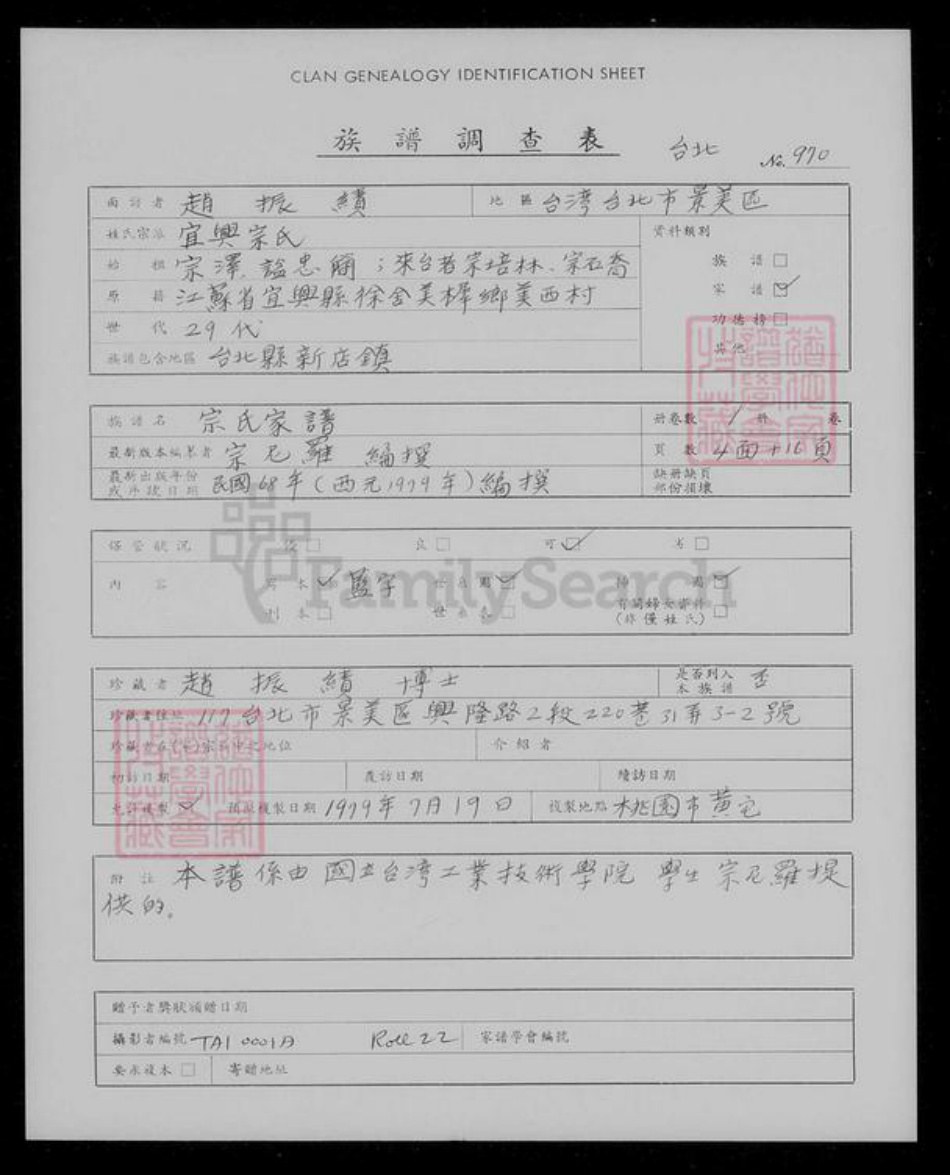 CLAN GENEALOGY IDENTIFICATION SHEET
族譜調查表 台北 No. 970
面訪者 趙振績 地區 台湾台北市景美區
姓氏宗派 宜興宗氏 資料類別
始祖 宗澤,諡忠簡;來台者宗培林、宗石喬 族譜□
原籍 江蘇省宜興縣徐舍美樨鄉美西村 家譜☑
世代 29代 功德榜□
族譜包含地區 台北縣新店鎮 其他
族譜名 宗氏家譜 冊卷數 1冊 卷
最新版本編著者 宗尼羅 編撰 頁數 4面+16頁
最新出版年份 民國68年(西元1979年)編撰 缺冊缺頁
或手跋日期 部份損壞
保管狀況 良□ 可☑ 劣□
內容 寫本☑ 藍字 世系圖☑ 插圖☑
刊本□ 世系表□ 有關婦女資料□
(非僅姓氏)
珍藏者 趙振績 博士 是否列入 否
本族譜
珍藏者住址 117台北市景美區興隆路2段220巷31弄3-2號
珍藏者在(本)宗族中之地位 介紹者
初訪日期 覆訪日期 續訪日期
允許複製☑ 預擬複製日期 1979年7月19日 複製地點 桃園市黄宅
附註 本譜係由國立台湾工業技術學院 學生宗尼羅提
供的。
贈予者獎狀頒贈日期
攝影者編號 TAI 0001A Roll 22 家譜學會編號
要求複本□ 寄贈地址
FamilySearch